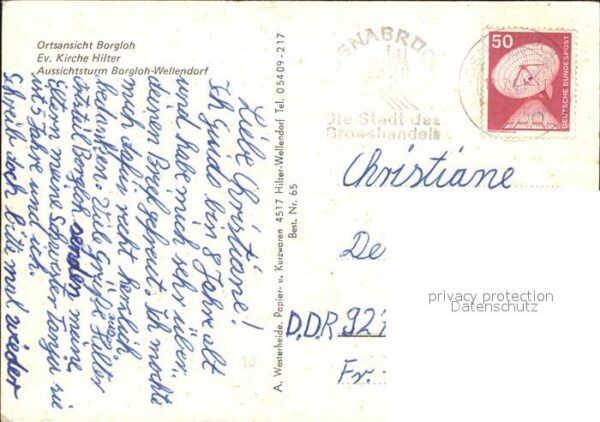 Ortsansicht Borgloh
Ev. Kirche Hilter
Aussichtsturm Borgloh-Wellendorf
Liebe Christiane!
Ich Guido bin 8 Jahre alt
und habe mich sehr über
deinen Brief gefreut. Ich möchte
mich dafür recht herzlich
bedanken. Viele Grüße aus Hilter
Ortsteil Borgloh senden meine
Eltern meine Schwester Tanja sie
ist 5 Jahre und ich.
Schreib doch bitte mal wieder
A. Westerheide, Papier- u. Kurzwaren 4517 Hilter-Wellendorf Tel. 05409-217
Best. Nr. 65
10
OSNABRÜCK
Die Stadt des
Grosshandels
50
DEUTSCHE BUNDESPOST
Christiane
De
privacy protection
Datenschutz
D.D.R 92
Fr.